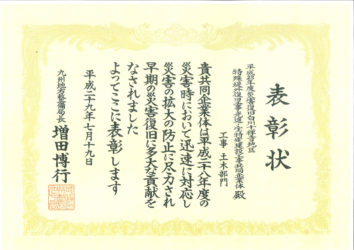 表彰状
工事 土木部門
殿
貴共同企業体は平成二十八年度の
災害時において迅速に対応し
災害の拡大の防止に尽力され
早期の災害復旧に多大な貢献を
なされました
よってここに表彰します
平成二十九年七月十九日
九州地方整備局長 増田博行